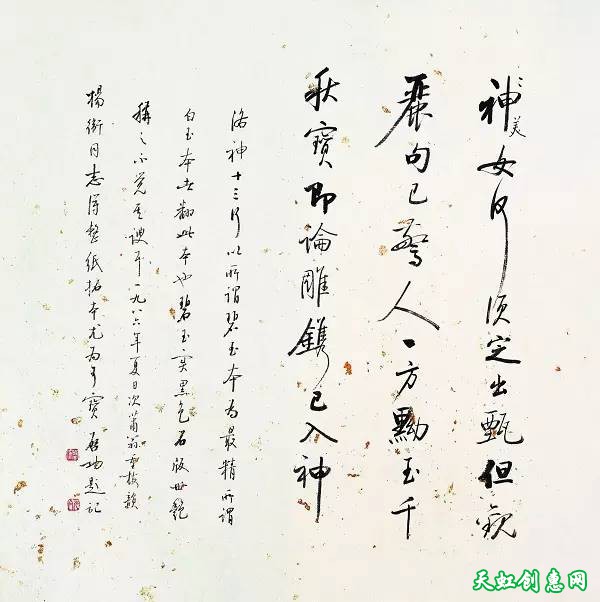 神女何須定出甄但觀
美
麗句已驚人一方黝玉千
秋寶即論雕鐫已入神
洛神十三行以所謂碧玉本為最精所謂
白玉本者翻此本也碧玉實黑色石版世艷
稱之不覺其謏耳一九八六年夏日次
同志得整紙拓本尤為可寶啟功題記
天虹创惠网